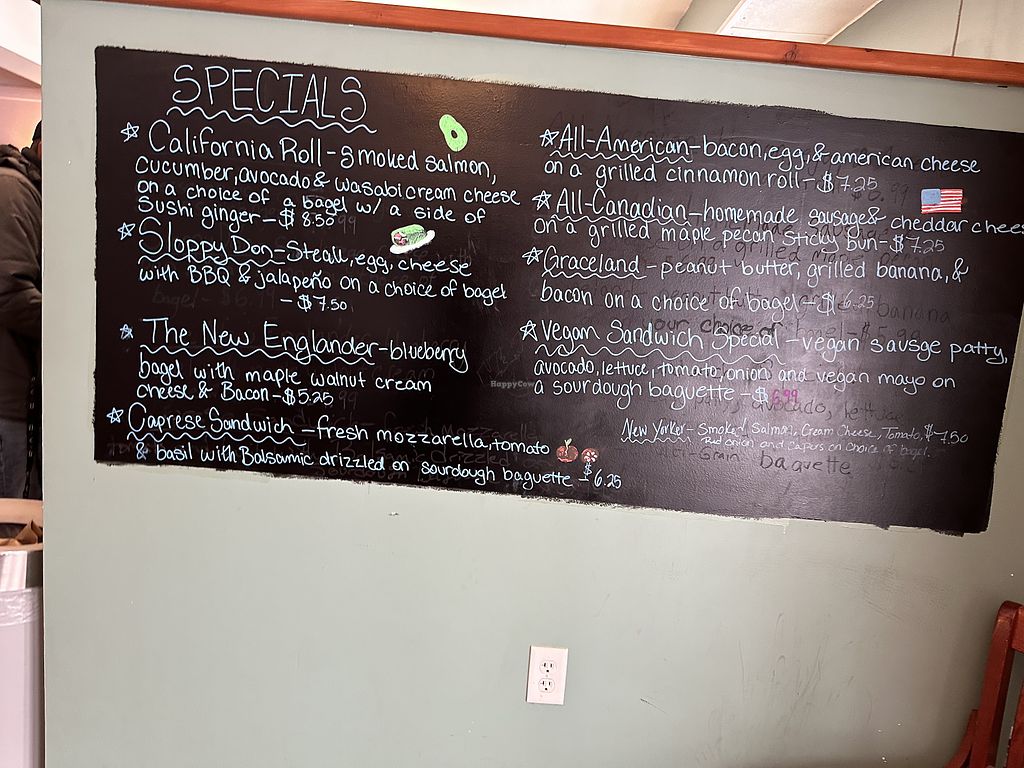 SPECIALS
☆ California Roll - smoked salmon,
cucumber, avocado & wasabi cream cheese
on a choice of a bagel w/ a side of
sushi ginger - $8.50
☆ Sloppy Don - Steak, egg, cheese
with BBQ & jalapeño on a choice of bagel
- $7.50
☆ The New Englander - blueberry
bagel with maple walnut cream
cheese & Bacon - $5.25
☆ Caprese Sandwich - fresh mozzarella, tomato
& basil with Balsamic drizzled on sourdough baguette - 6.25
☆ All-American - bacon, egg, & american cheese
on a grilled cinnamon roll - $7.25
☆ All-Canadian - homemade sausage & cheddar chees
on a grilled maple pecan sticky bun - $7.25
☆ Graceland - peanut butter, grilled banana, &
bacon on a choice of bagel - $6.25
☆ Vegan Sandwich Special - vegan sausge patty,
avocado, lettuce, tomato, onion and vegan mayo on
a sourdough baguette - $6.99
New Yorker - Smoked Salmal, Cream Cheese, Tomato, $7.50
Red onion and capers on Choice of bagel.
baguette
HappyCow